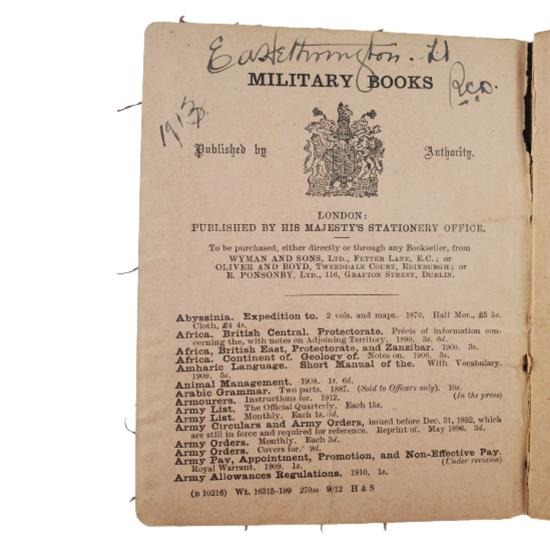 Lt
MILITARY BOOKS
1913
Published by Authority.
LONDON:
PUBLISHED BY HIS MAJESTY'S STATIONERY OFFICE.
To be purchased, either directly or through any Bookseller, from
WYMAN AND SONS, LTD., FETTER LANE, E.C.; or
OLIVER AND BOYD, TWEEDDALE COURT, EDINBURGH; or
E. PONSONBY, LTD., 116, GRAFTON STREET, DUBLIN.
Abyssinia. Expedition to. 2 vols. and maps. 1870. Half Mor., £5 5s.
Cloth, £4 4s.
Africa. British Central. Protectorate. Précis of information con-
cerning the, with notes on Adjoining Territory. 1899. 3s. 6d.
Africa, British East, Protectorate, and Zanzibar. 1900. 3s.
Africa. Continent of. Geology of. Notes on. 1906. 3s.
Amharic Language. Short Manual of the. With Vocabulary.
1909. 5s.
Animal Management. 1908. 1s. 6d.
Arabic Grammar. Two parts. 1887. (Sold to Officers only). 10s.
Armourers. Instructions for. 1912. (In the press)
Army List. The Official Quarterly. Each 15s.
Army List. Monthly. Each 1s. 6d.
Army Circulars and Army Orders, issued before Dec. 31, 1892, which
are still in force and required for reference. Reprint of. May 1896. 3d.
Army Orders. Monthly. Each 3d.
Army Orders. Covers for. 9d.
Army Pay, Appointment, Promotion, and Non-Effective Pay.
Royal Warrant. 1909. 1s. (Under revision)
Army Allowances Regulations. 1910. 1s.
(B 10216) Wt. 16315-199 270m 9/12 H & S